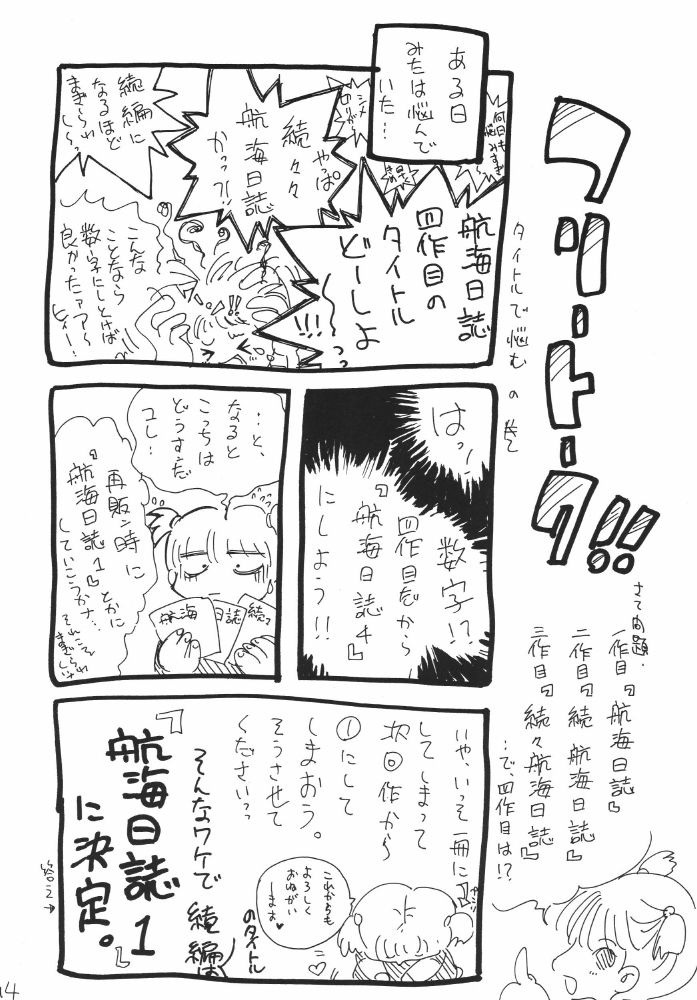 フリートーク!!
タイトルで悩む の巻
さて問題。
一作目『航海日誌』
二作目『続 航海日誌』
三作目『続々航海日誌』
…で、四作目は!?
ある日
みたは悩んで
いた…
何日も
悩みすぎ
シメ
切りが
航海日誌
四作目の
タイトル
どーしよ
〜っっ
!!!
やっぱ
続々々
航海日誌
かっ?!
続編に
なるほど
まぎらわ
し〜っ
こんな
ことなら
数字にしとけば
良かったァァァ〜
ヒィー!
はっ!
数字!?
四作目だから
『航海日誌4』
にしよう!!
…と、
なると
こっちは
どうすんだ
ユレ…
航海
日誌
続々
再販の時に
『航海日誌1』とかに
していこうかナ…
それこそ
まぎらわしいナ
いや、いっそ一冊に
してしまって
次回作から
①にして
しまおう。
そうさせて
くださいっっ
これからも
よろしく
おねがい
しま〜す♥
そんなワケで続編は
のタイトル
『航海日誌1』
に決定。
答え→
14